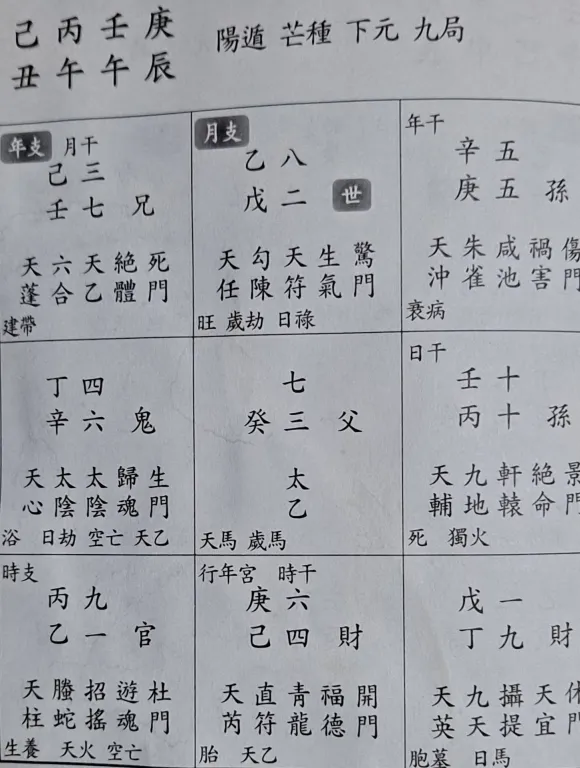 己丙壬庚 陽遁 芒種 下元 九局
丑午午辰
年支 月干
己三
壬七 兄
天六天絕死
蓬合乙體門
建帶
月支
乙八
戊二 世
天勾天生驚
任陳符氣門
旺 歲劫 日祿
年干
辛五
庚五 孫
天朱咸禍傷
沖雀池害門
衰病
丁四
辛六 鬼
天太太歸生
心陰陰魂門
浴 日劫 空亡 天乙
七
癸三 父
太
乙
天馬 歲馬
日干
壬十
丙十 孫
天九軒絕景
輔地轅命門
死 獨火
時支
丙九
乙一 官
天螣招遊杜
柱蛇搖魂門
生養 天火 空亡
行年宮 時干
庚六
己四 財
天直青福開
芮符龍德門
胎 天乙
戊一
丁九 財
天九攝天休
英天提宜門
胞墓 日馬